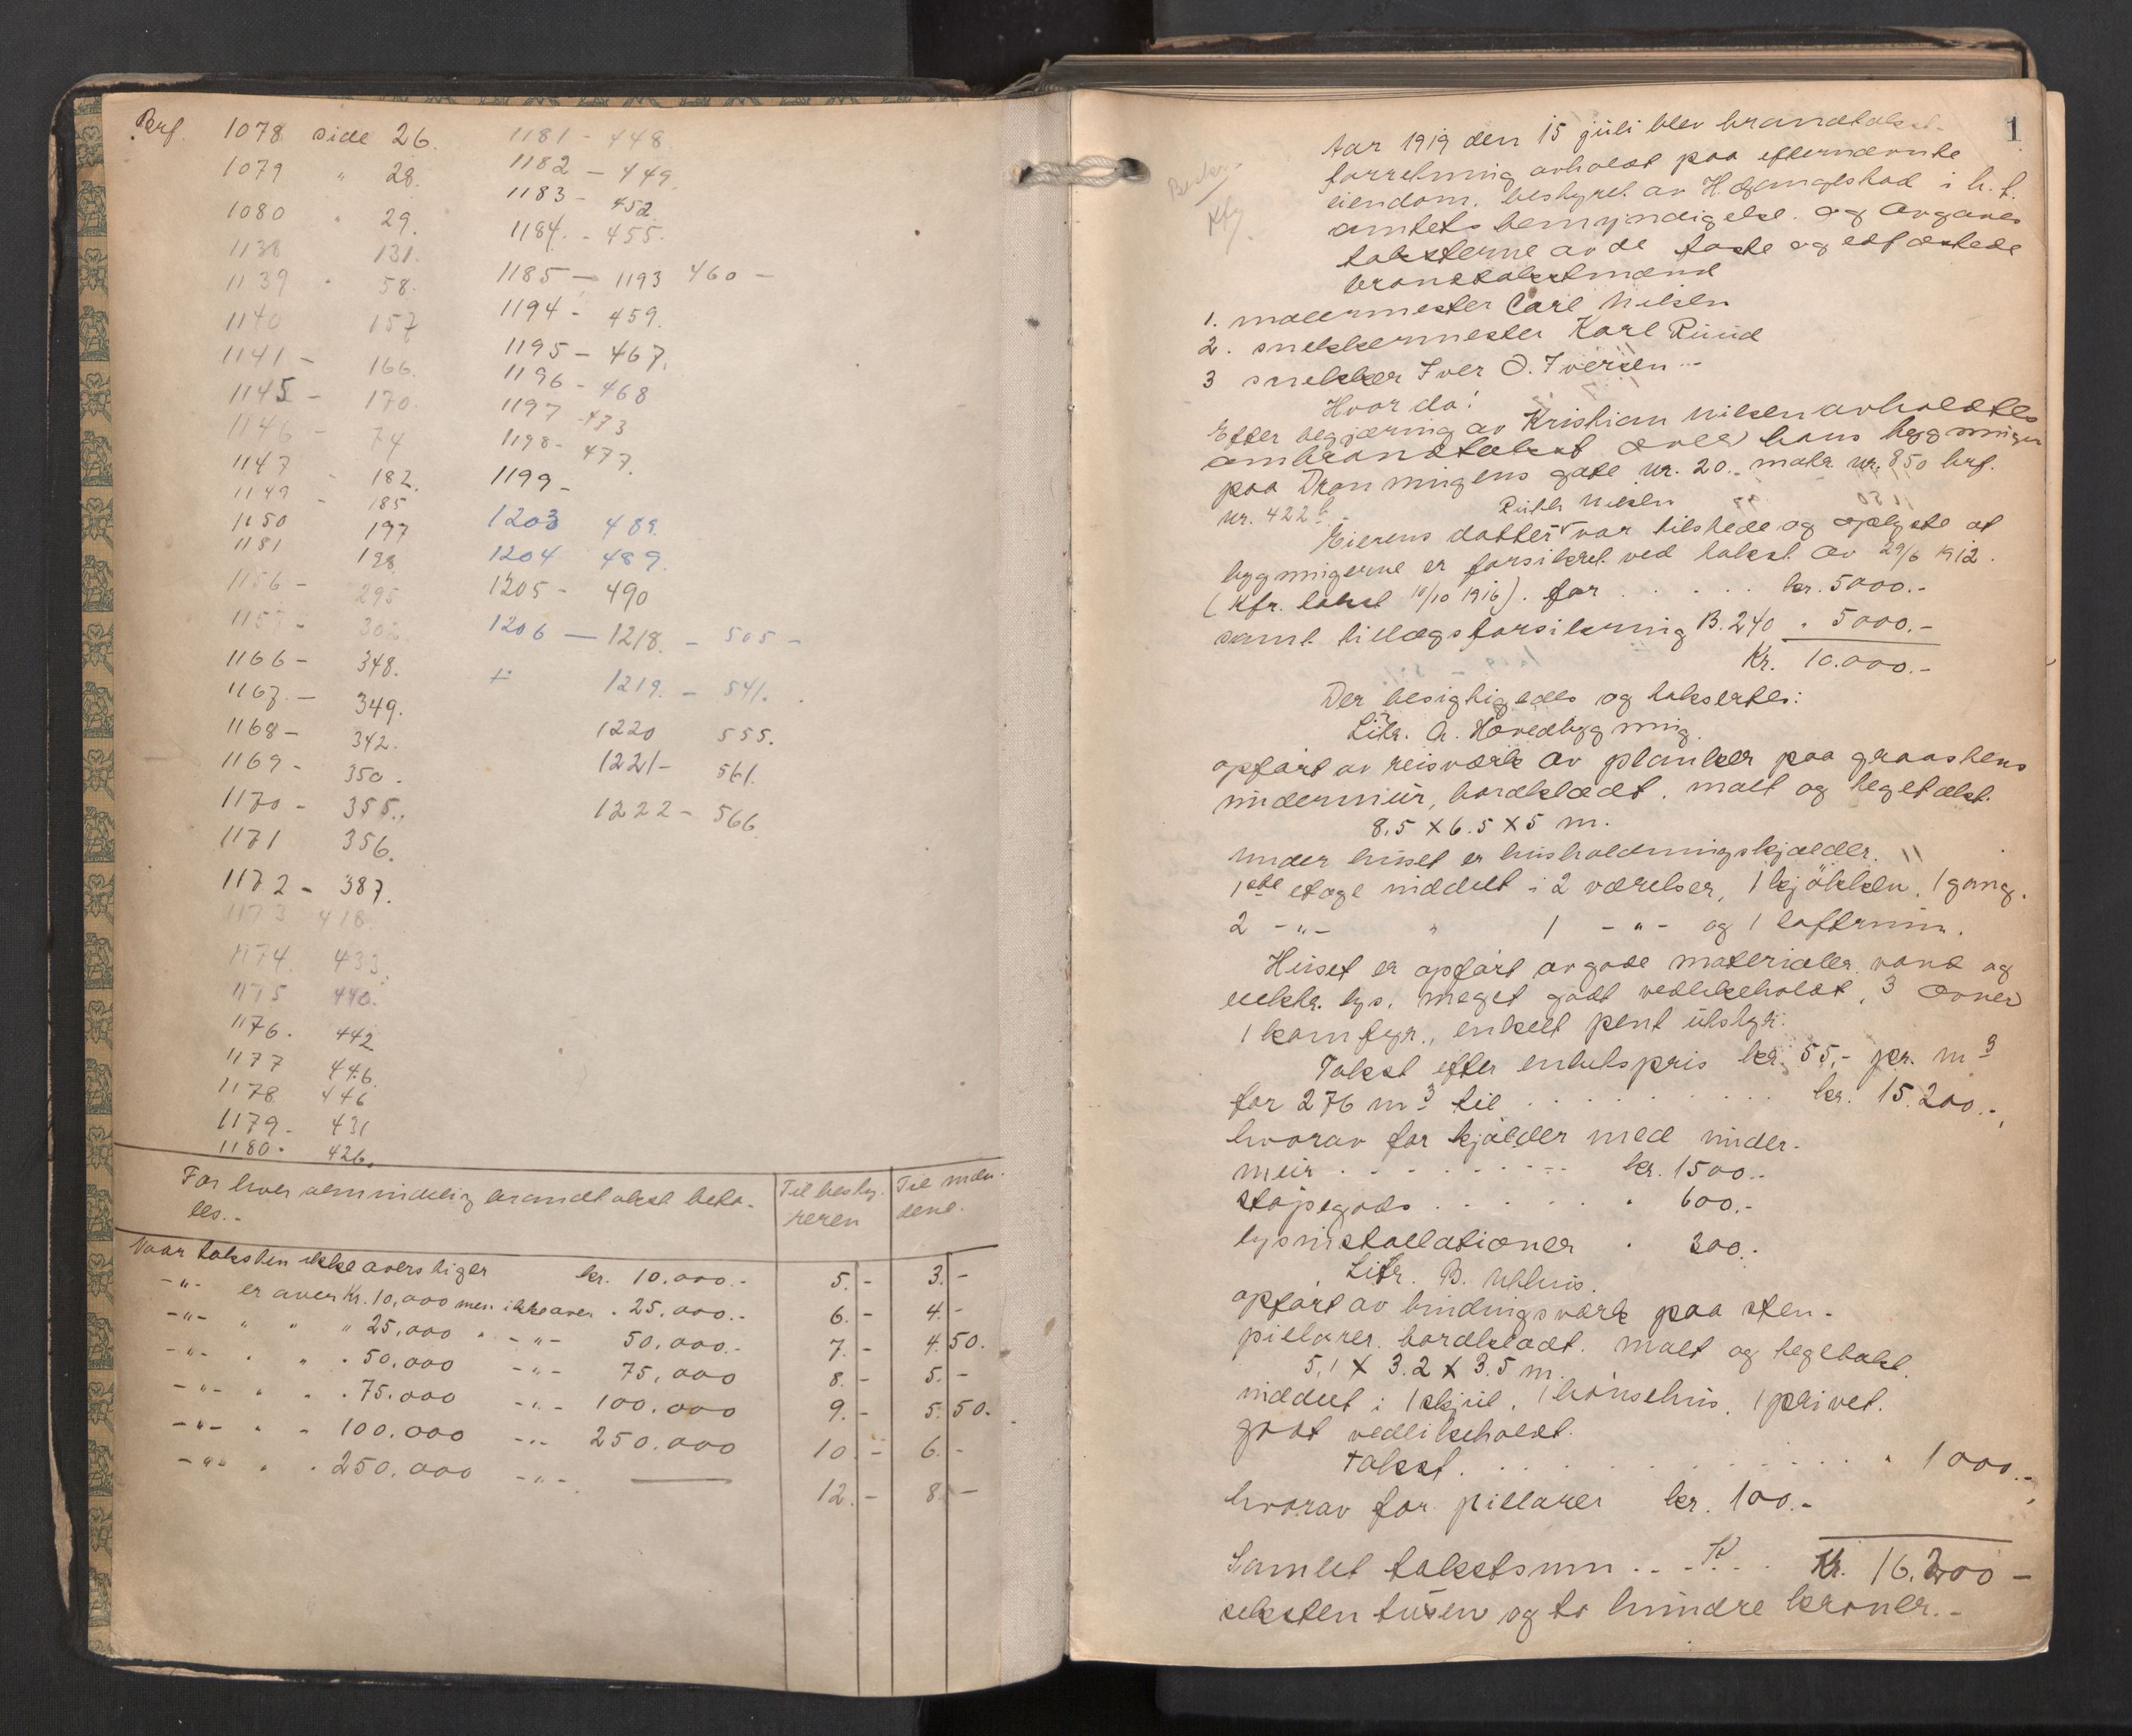 Brf. 1078 side 26.
1079 " 28.
1080 " 29.
1138 131.
1139 " 58.
1140 157
1141 - 166.
1145 - 170.
1146 - 74
1147 - 182.
1149 - 185
1150 197
1181 198
1156 - 295
1157 - 302
1166 - 348.
1167. - 349.
1168 - 342.
1169 - 350.
1170 - 355.
1171 356.
1172 - 387.
1173 418.
1174. 433.
1175 440.
1176. 442
1177 446.
1178 446
1179. 431
1180. 426.
1181 - 448.
1182 - 449.
1183 - 452
1184. - 455.
1185 - 1193 460 -
1194 - 459.
1195 - 467.
1196 - 468
1197 - 473
1198 - 477.
1199 -
1203 489.
1204 489.
1205 - 490
1206 - 1218. - 505 -
1219. - 541.
1220 555.
1221 - 561.
1222 - 566.
For hver almindelig brandtakst beta-
les.- Til besty-
reren Til mæn-
dene.
Naar taksten ikke overstiger kr. 10.000.- 5.- 3.-
-"- er over Kr. 10,000 men ikke over " 25.000.- 6.- 4.-
-"- " " " 25.000 " -"- 50.000.- 7.- 4.50.
-"- " " " 50.000 -"- 75.000 8.- 5.-
-"- " " " 75.000 -"- 100.000 9.- 5.50.
-"- " " 100.000 -"- 250.000 10.- 6.-
-"- " " 250.000 -"- 12.- 8.-
1
Aar 1919 den 15 juli blev brandtakst-
forretning avholdt paa efternævnte
eiendom, bestyret av H. i h. t.
amtets bemyndigelse og avgaves
taksterne av de faste og edfæstede
brandtakstmænd
1. malermester Carl Nilsen
2. snekkermester Karl Ruud
3 snekker Iver O. Iversen -
Hvorda:
Efter begjæring av Kristian Nilsen avholdtes
ombrandtakst over hans bygninger
paa Dronningens gate nr. 20. matr. nr. 850 brf.
nr. 422b.
Ruth Nilsen
Eierens datter var tilstede og oplyste at
bygningerne er forsikret ved takst av 29/6 1912.
(Kfr. takst 10/10 1916). for . . . . . kr. 5000.-
samt tillægsforsikring B. 240 " 5000.-
Kr. 10.000.-
Der besigtigedes og taksertes:
Litr. A. Hovedbygning.
opført av reisværk av planker paa graastens
undermur, bordklædt, malt og tegltækt.
8.5 X 6.5 X 5 m.
Under huset er husholdningskjælder.
1ste etage inddelt i 2 værelser, 1 kjøkken, 1 gang.
2 -"- " 1 -"- og 1 loftrum.
Huset er opført av gode materialer, vand og
elektr. lys, meget godt vedlikeholdt, 3 ovner
1 komfyr., enkelt pent utstyr.
Takst efter enhetspris kr. 55,- pr. m3
for 276 m3 til . . . . . . . . . kr. 15.200.-,
hvorav for kjælder med under-
mur . . . . . . . . kr. 1500.-
støpegods . . . . . . " 600.-
lysinstallationer " 300.-
Litr. B. Uthus.
opført av bindingsværk paa sten-
pillarer, bordklædt, malt og tegltækt.
5,1 X 3.2 X 3.5 m.
inddelt i 1 skjul, 1 hønsehus, 1 privet.
godt vedlikeholdt.
Takst . . . . . . . . . . . . . . " 1000.-,
hvorav for pillarer kr. 100.-
Samlet takstsum . . . . Kr. 16.200 -
seksten tusen og to hundre kroner.-